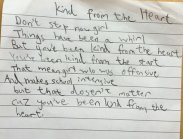 Kind from the Heart
Don't stop now girl
Things have been a whirl
But you've been kind from the heart
You've been kind from the start
That mean girl who was offensive
And makes school intensive
but that doesn't matter
cuz you've been kind from the
heart